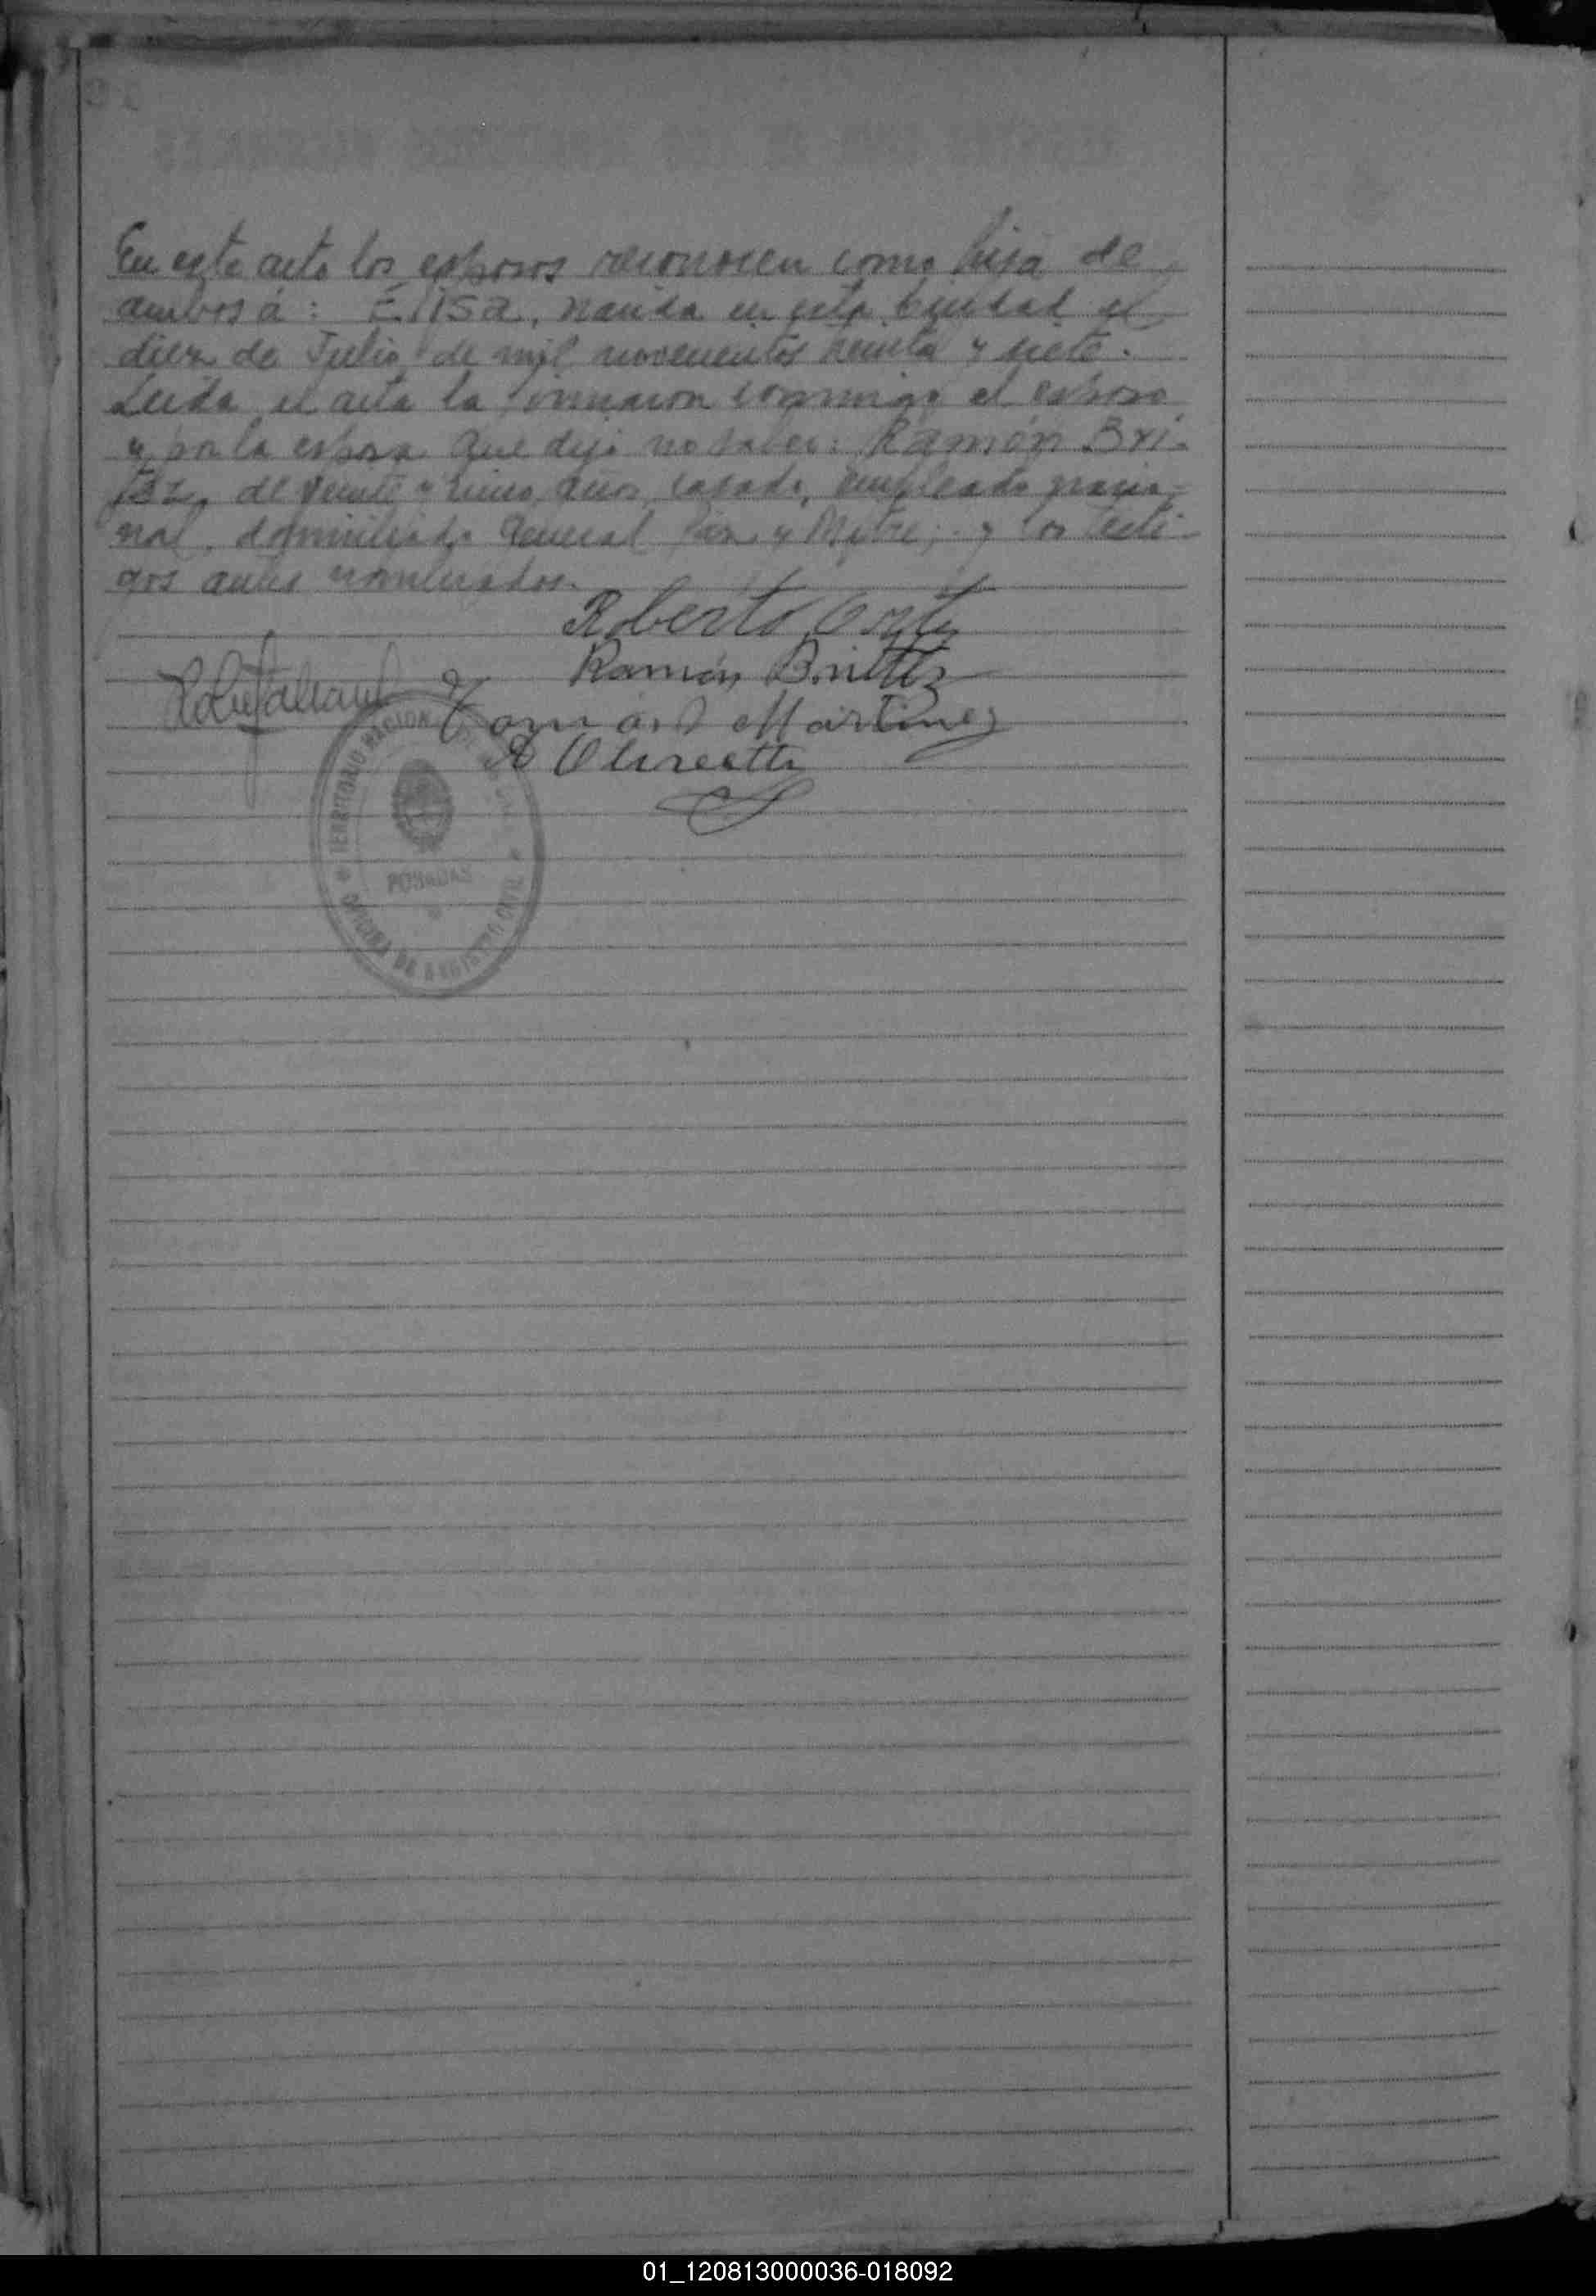 En este acto los esposos reconocen como hija de
ambos á: Elisa, nacida en esta Ciudad el
diez de Julio de mil novecientos treinta y siete.
Leida el acta la firmaron conmigo el esposo
y por la esposa que dijo no saber: Ramón Bri-
tez, de veinte y cinco años, casado, empleado
nal, domiciliado General Paz y Mitre; y los testi-
gos antes nombrados.
Roberto
Ramón Brittez
Martinez
TERRITORIO NACIONAL DE
POSADAS
OFICINA DE REGISTRO CIVIL
01_120813000036-018092